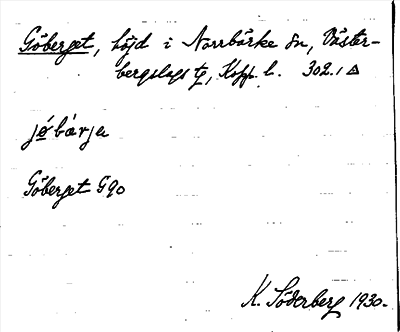 Göberget, höjd i Norrbärke sn, Väster-
bergslags tg, Kopp. l. 302.1 △
jǿbàrja
Göberget G90
K. Söderberg 1930.